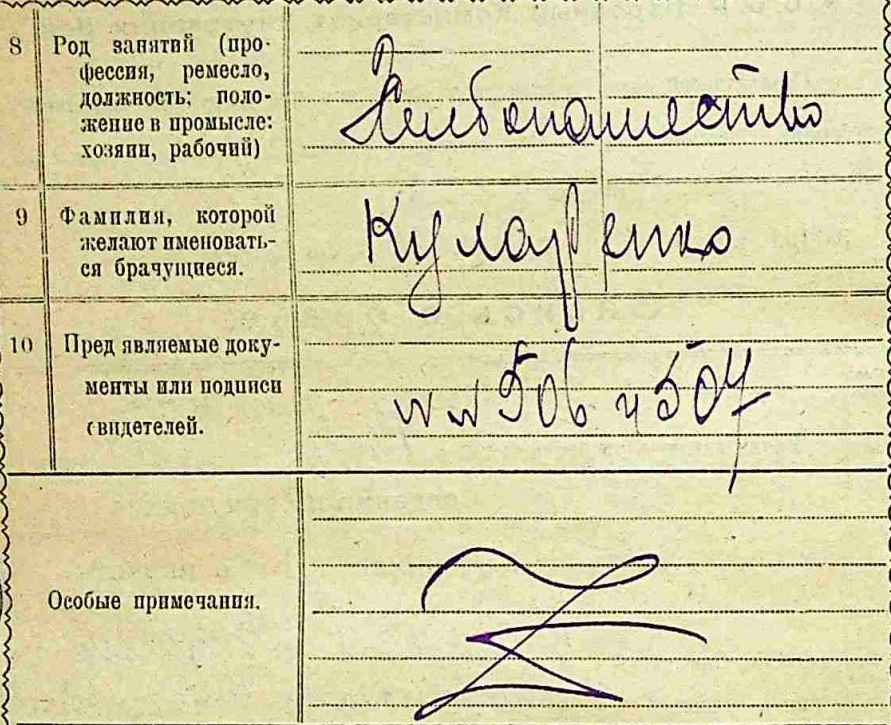 8 Род занятий (про-
фессия, ремесло,
должность; поло-
жение в промысле:
хозяин, рабочий)
Хлебопашество
9 Фамилия, которой
желают именовать-
ся брачущиеся.
10 Пред являемые доку-
менты или подписи
свидетелей.
506 и 507
Особые примечания.